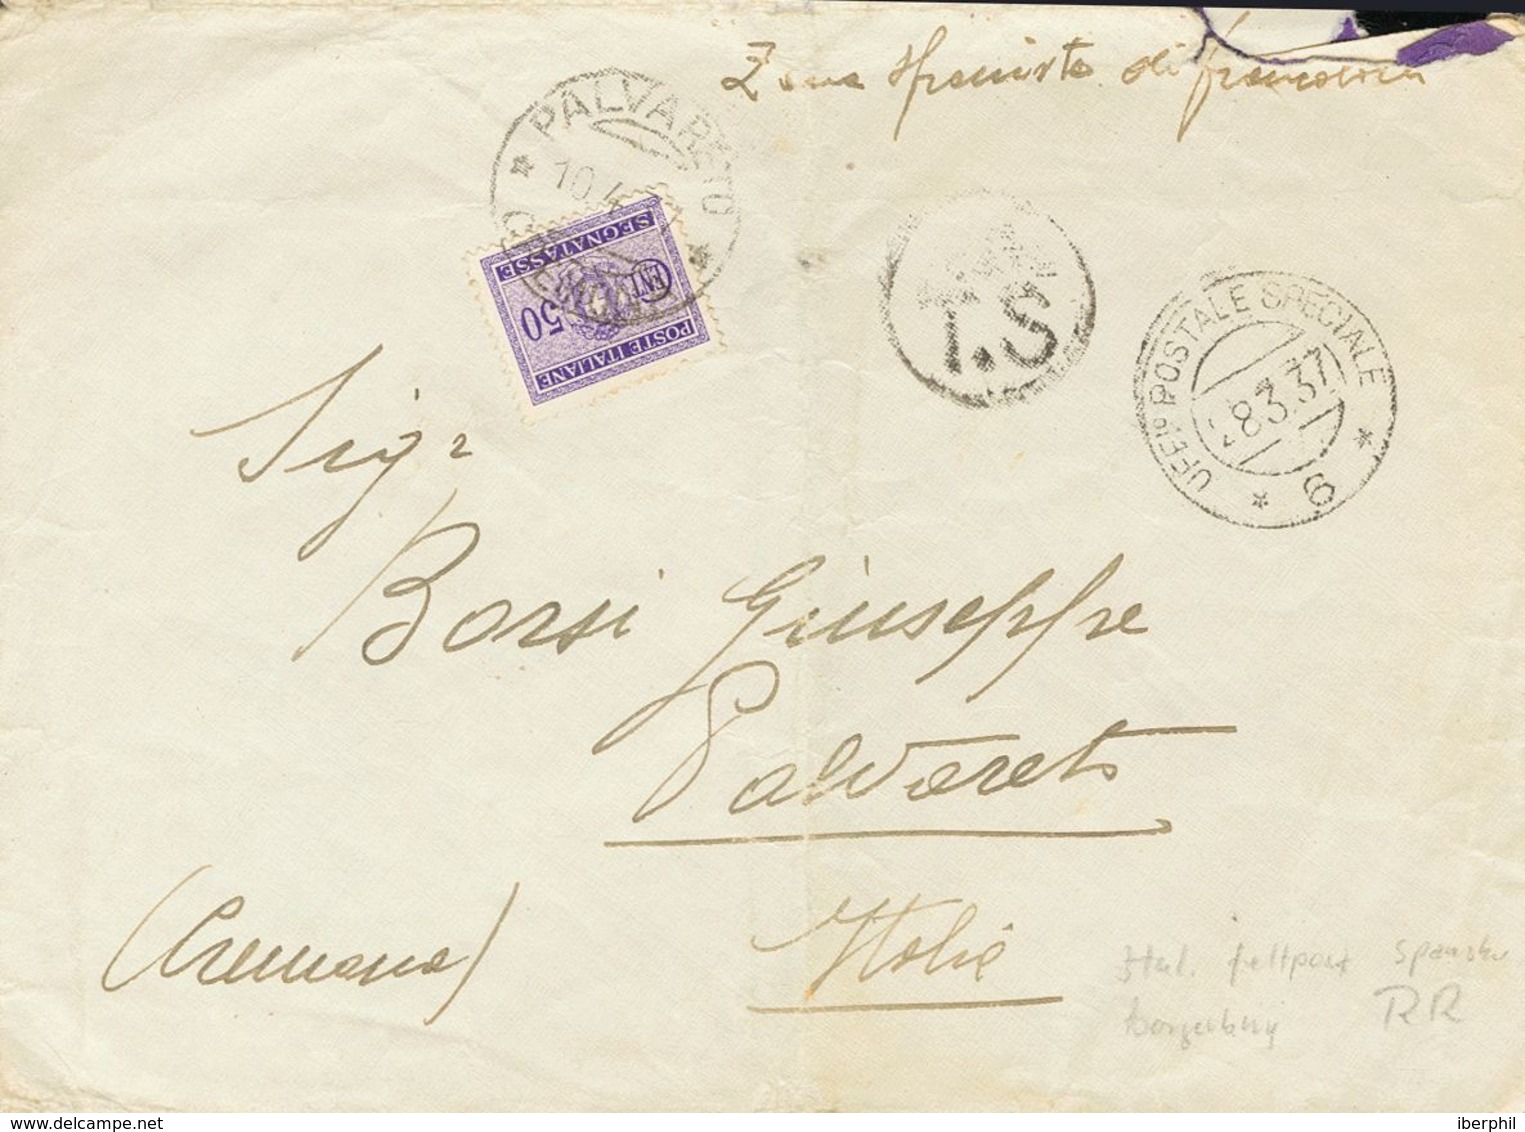 Zona sprovvista di francobolli
PALVARETO
10.4
SEGNATASSE
CENT
50
POSTE ITALIANE
T.S
UFFº POSTALE SPECIALE
28.3.37
* 6 *
Sigr
Borsi Giuseppe
Palvareto
(Cremona)
Italia
Ital. feltpost
RR
www.delcampe.net
iberphil